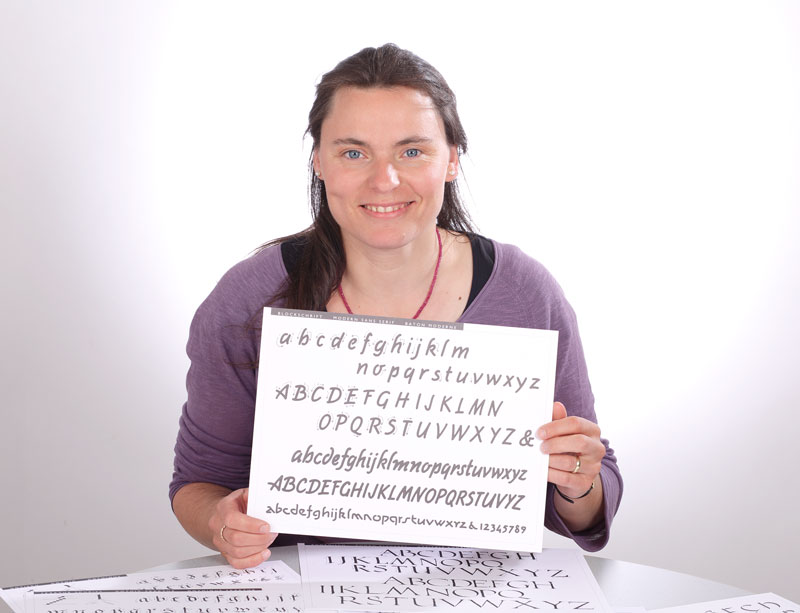 BLOCKSCHRIFT MODERN SANS SERIF BATON MODERNE
abcdefghijklm
nopqrstuvwxyz
ABCDEFGHIJKLMN
OPQRSTUVWXYZ&
abcdefghijklmnopqrstuvwxyz
ABCDEFGHIJKLMNOPQRSTUVWXYZ
abcdefghijklmnopqrstuvwxyz&12345789
ABCDEFGH
IJKLMNOPQ
RSTUVWXYZ
ABCDEFGH
IJKLMNOPQ
RSTUVWXYZ